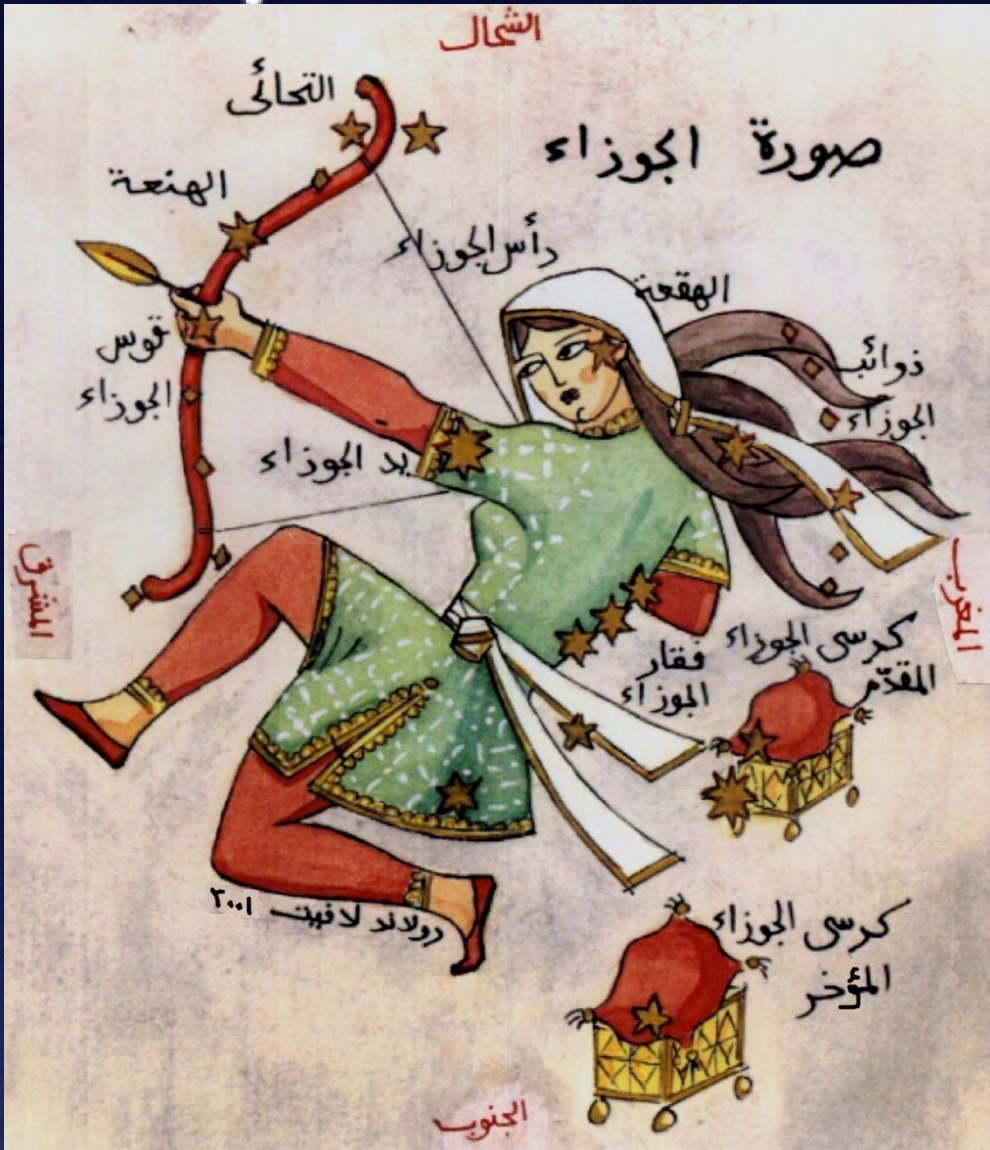 الشمال
التحائى
صورة الجوزاء
الهنعة
رأس الجوزاء
الهقعة
قوس
الجوزاء
ذوائب
الجوزاء
يد الجوزاء
المشرق
المغرب
فقار
الجوزاء
كرسى الجوزاء
المقدّم
رولاند لافيت ٢٠٠١
كرسى الجوزاء
المؤخر
الجنوب